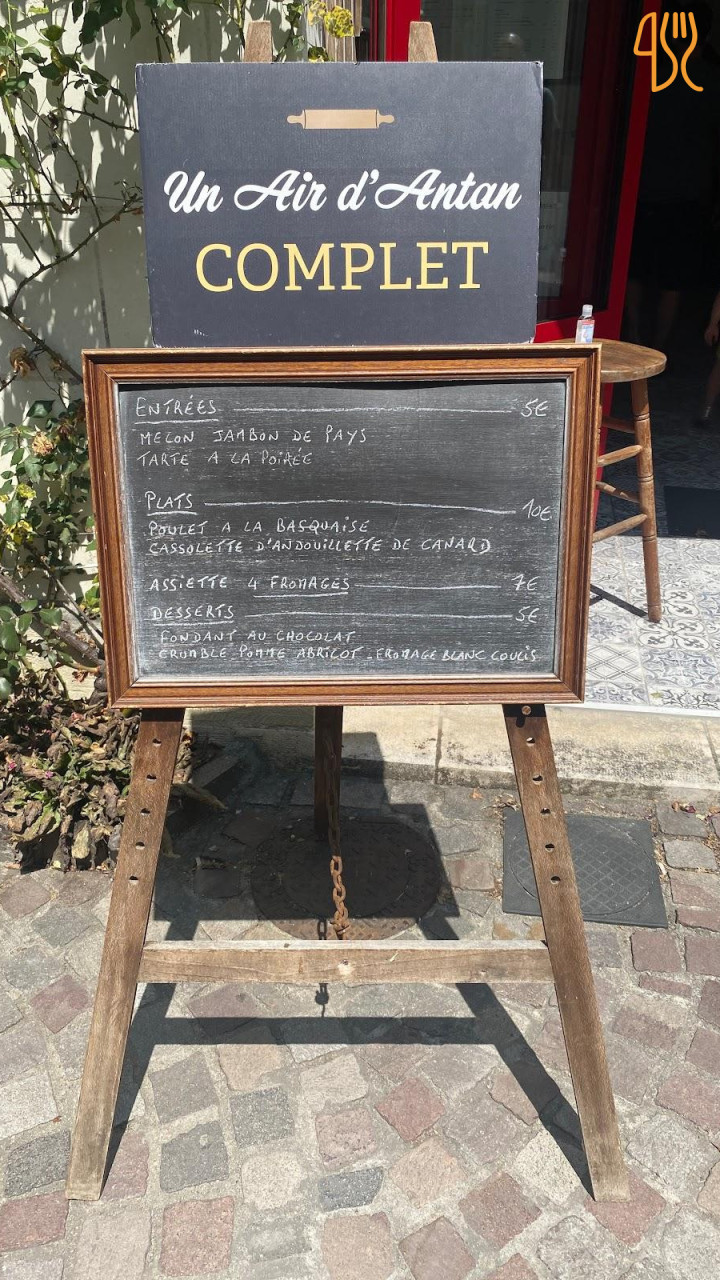 Un Air d'Antan
COMPLET
ENTRÉES 5€
MELON JAMBON DE PAYS
TARTE A LA POIRÉE
PLATS 10€
POULET A LA BASQUAISE
CASSOLETTE D'ANDOUILLETTE DE CANARD
ASSIETTE 4 FROMAGES 7€
DESSERTS 5€
FONDANT AU CHOCOLAT
CRUMBLE POMME ABRICOT - FROMAGE BLANC COULIS